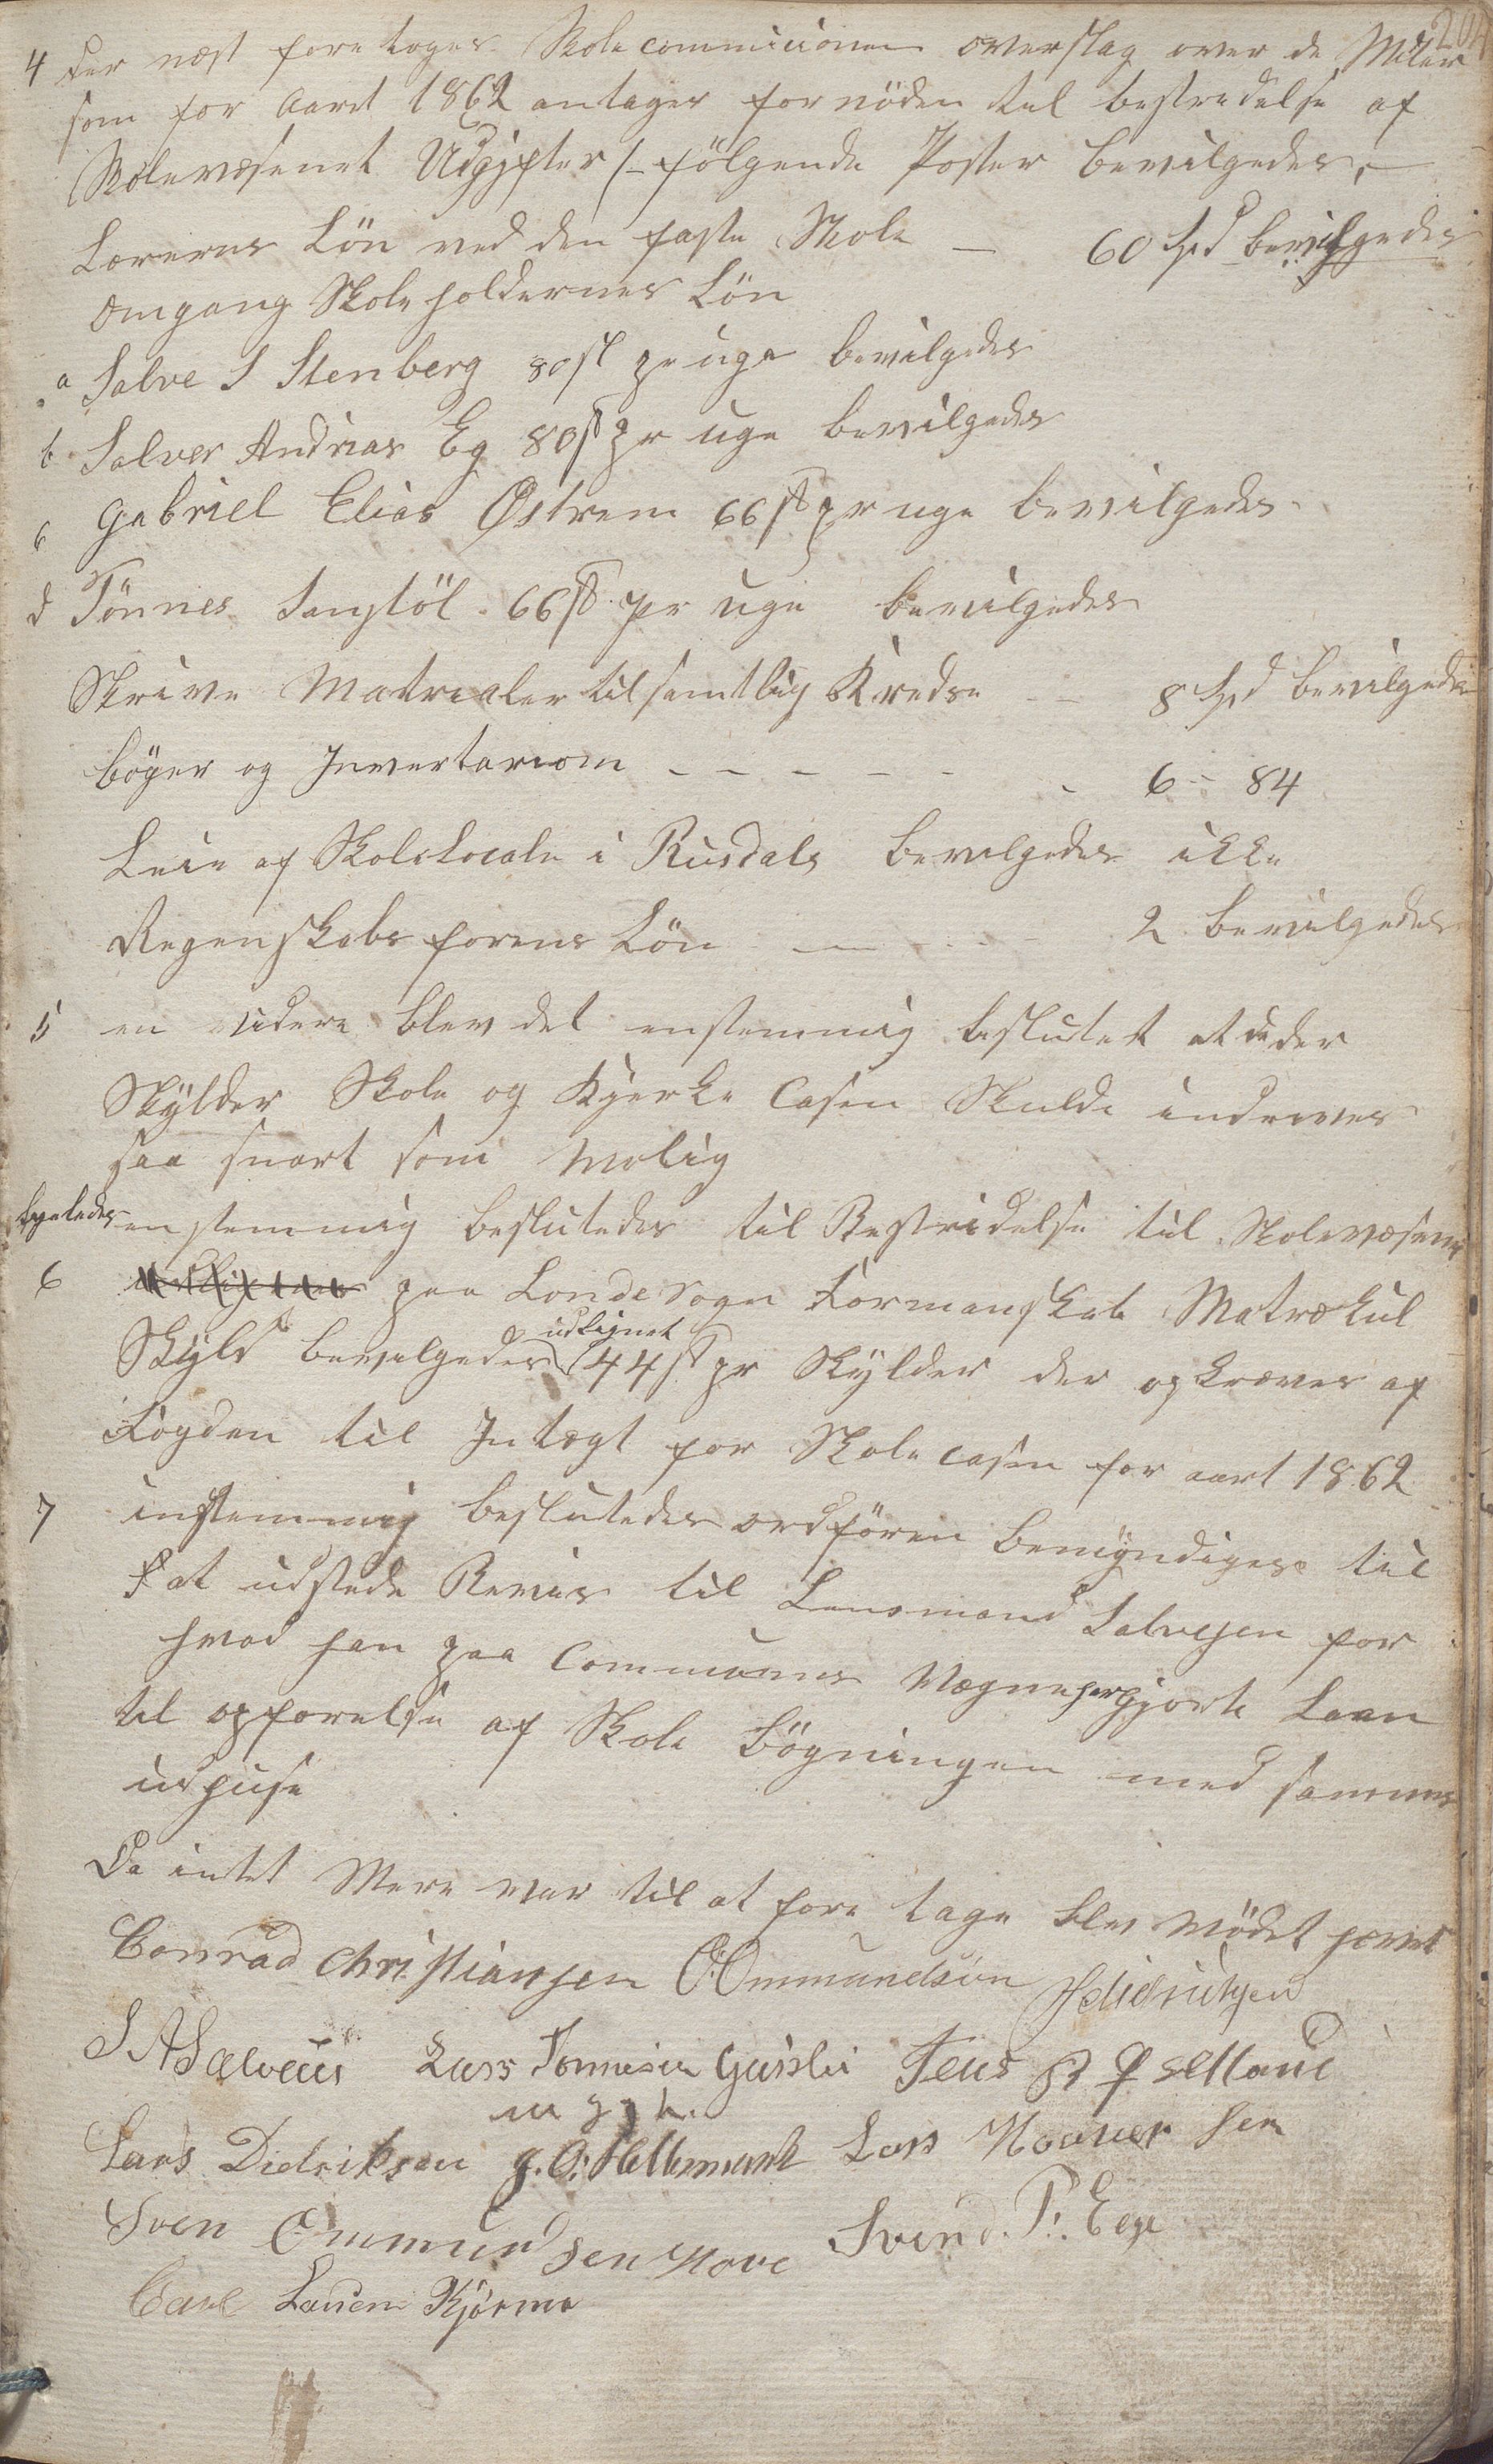 204
4 der næst foretoges Skolecommisionen overslag over de Midler
som for Aaret 1862 antages fornöden til bestridelse af
Skolevæsenet Udgifter /- fölgende Poster bevilgedes,-
Lærerens Lön ved den faste Skole - 60 Spd bevilgedes
Omgang Skoleholdernes Lön
a Salve S Stenberg 80 s pr uge bevilgedes
b Salver Andrias Eg 80 s pr uge bevilgedes
c Gabriel Elias Østrem 66 s pr uge bevilgedes
d Tönnes 66 s pr uge bevilgedes
Skrive Matrialer til samtlig Kredse - - 8 Spd bevilgedes
böger og Inventariom - - - - - - 6 - 84
Leie af Skolelocale i Rusdals bevilgedes ikke
Regenskabsforens Lön - - - 2 bevilgedes
5 en videre blev det enstemmig besluttet at de der
Skylder Skole og Kjerke Casen Skulde inderives
saa snart som Molig
Ligeledes enstemmig besluttedes til Bestridelse til Skolevæsenet
6 paa Londe Sogn Formanskab Matrekul
Skyld bevilgedes udlignet 44 s pr Skylder der opkræves af
Fogden til Intægt for Skolecasen for aart 1862
7 instemmig besluttedes ordfören bemyndiges til
at udstede Bevis til Lensmand Salvesen for
hvad han paa Communens Vægne har gjort Laan
til opförelse af Skole bögningen med sammes
udhuse
Da intet Mere var til at fore tage blev Mödet hævet
Conrad Christiansen O: Ommundsön Hdidriksen
S A Salvesen Lars Tonnesen Guisli Teus Selland
m g h.
Lars Didriksen J. O: Hellemark Lars Sen
Sven Ommundsen Hove Svend. P: Ege
Carl Lauen Kjörme